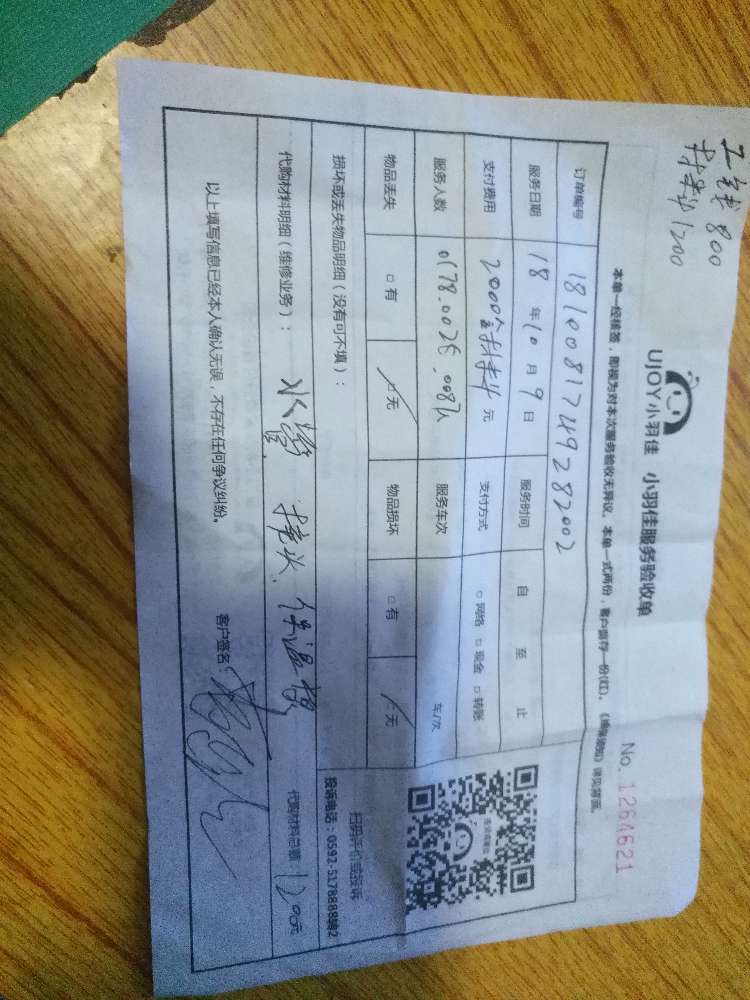 工钱 800
材料 1200
UJOY小羽佳 小羽佳服务验收单
No. 1264621
本单一经核签,即视为对本次服务验收无异议。本单一式两份,客户留存一份(红)。《维保须知》详见背面。
订单编号 1810081749282002
服务日期 18 年 10 月 9 日 服务时间 自 至 止
支付费用 2000 元 支付方式 □网络 □现金 □转账
服务人数 服务车次 车/次
物品丢失 □有 □无 物品损坏 □有 □无
扫码评价或投诉
投诉电话:0592-5178888转2
损坏或丢失物品明细(没有可不填):
代购材料明细(维修业务): 水管 接头 保温棉
代购材料总额 1200元
以上填写信息已经本人确认无误,不存在任何争议纠纷。
客户签名: